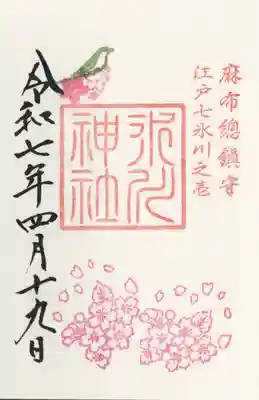 麻布總鎮守
江戸七氷川之壱
氷川
神社
令和七年四月十九日